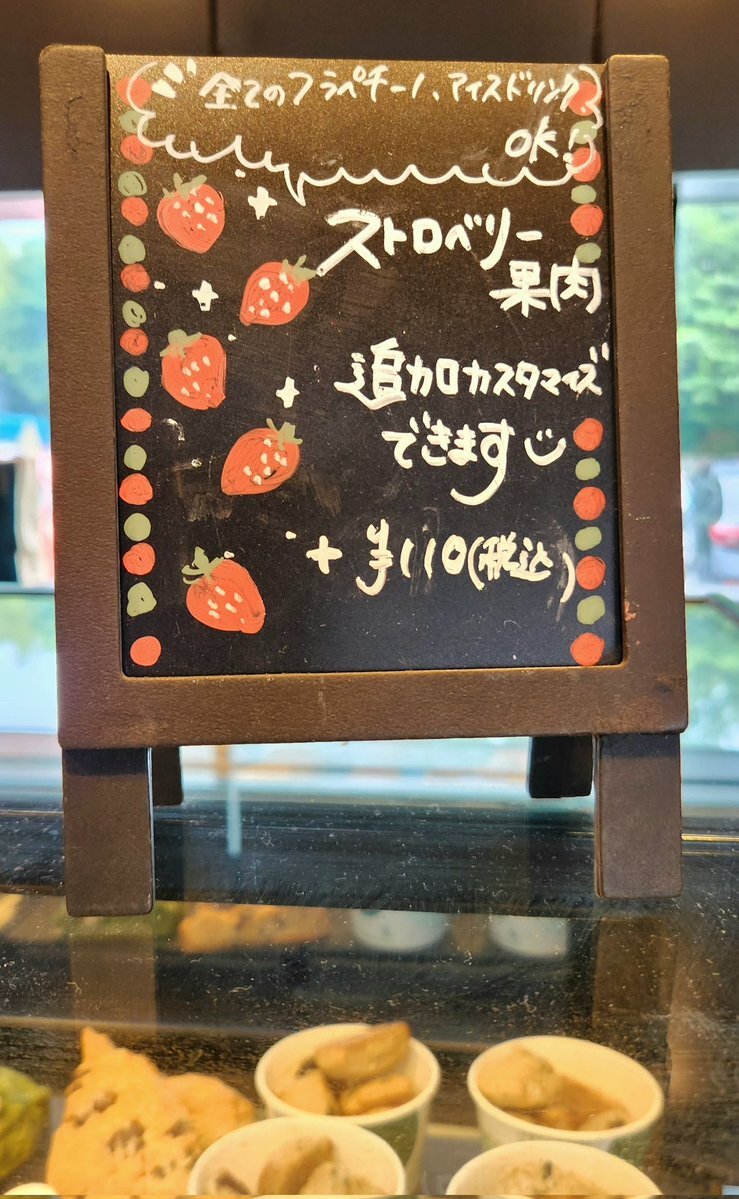 全てのフラペチーノ、アイスドリンク
OK!
ストロベリー
果肉
追加カスタマイズ
できます
+¥110(税込)